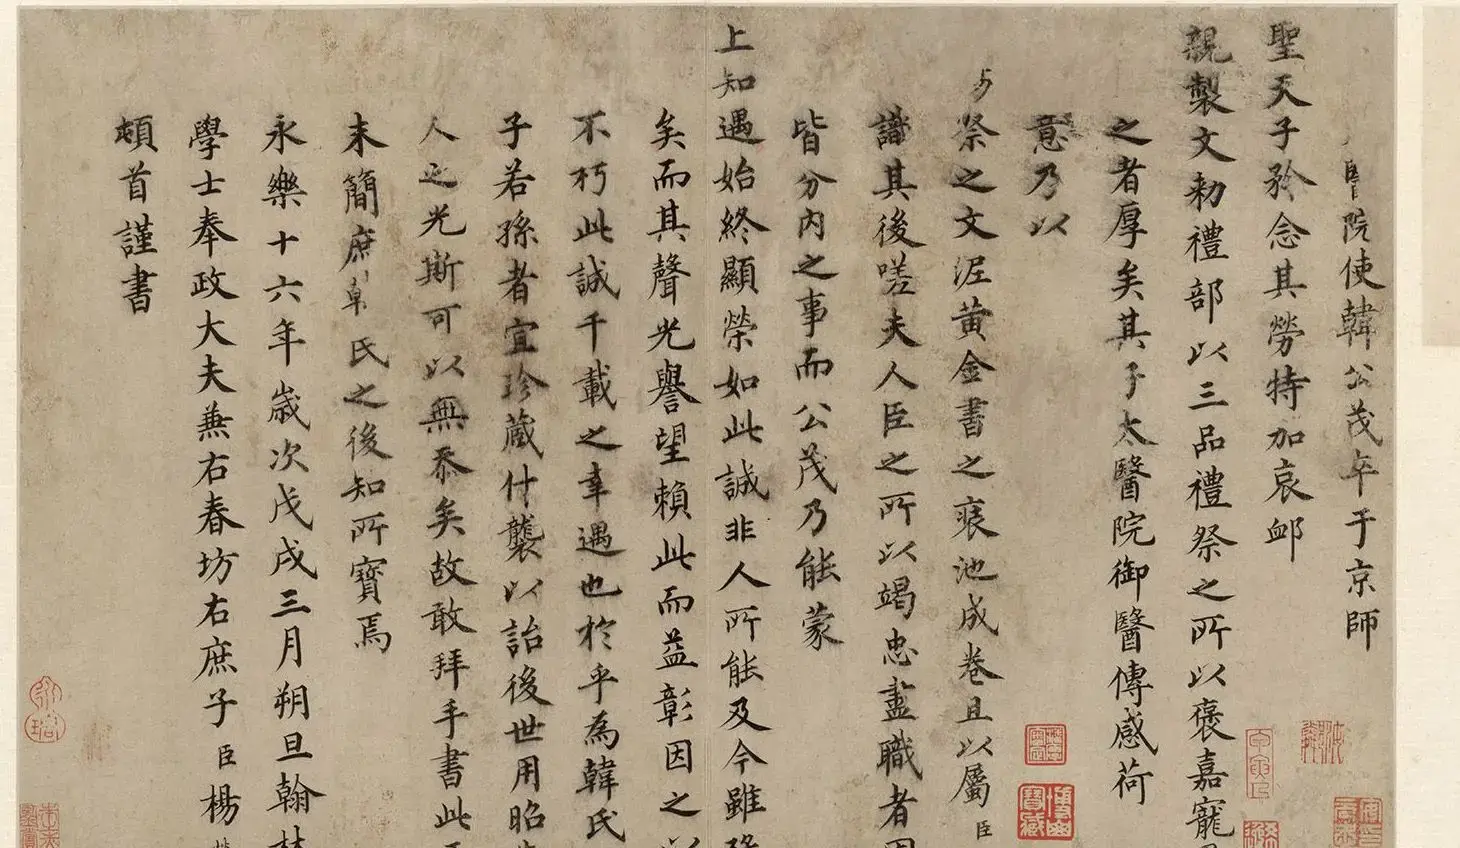 醫院使韓公茂卒于京師
聖天子矜念其勞特加哀卹
親製文勑禮部以三品禮祭之所以褒嘉寵
之者厚矣其子太醫院御醫傳感荷
意乃以
祭之文泥黃金書之裒池成卷且以屬臣
識其後嗟夫人臣之所以竭忠盡職者固
皆分內之事而公茂乃能蒙
上知遇始終顯榮如此誠非人所能及今雖
矣而其聲光譽望賴此而益彰因之以
不朽此誠千載之幸遇也於乎為韓氏
子若孫者宜珍藏什襲以詒後世用昭
人之光斯可以無忝矣故敢拜手書此
末簡庶韓氏之後知所寶焉
永樂十六年歲次戊戌三月朔旦翰林
學士奉政大夫兼右春坊右庶子臣楊
頓首謹書